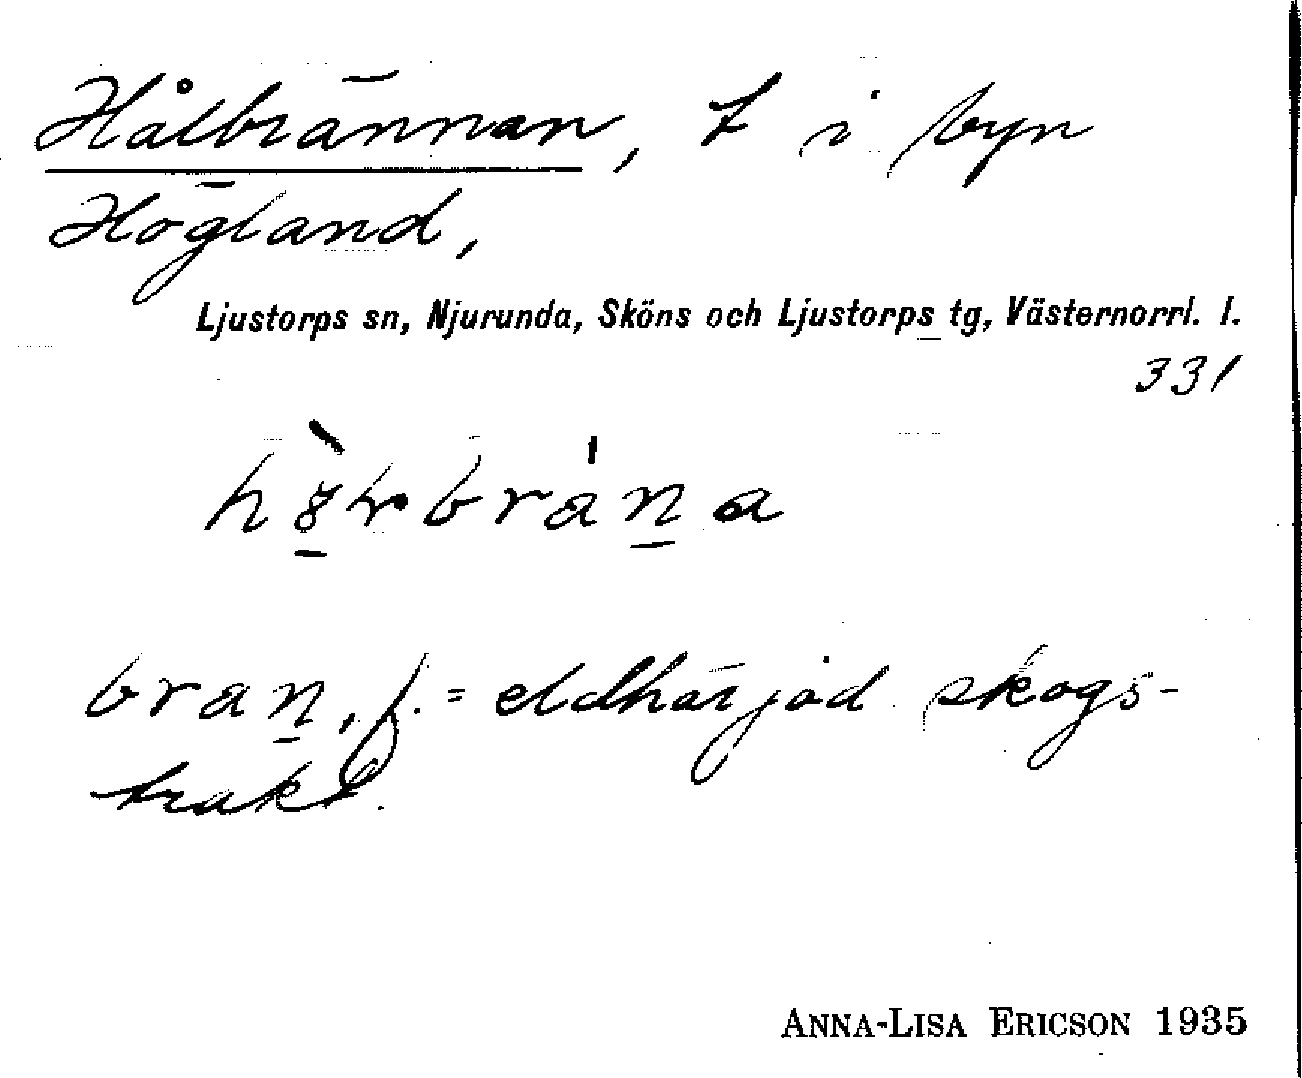 Hålbrännan, L i byn
Högland,
Ljustorps sn, Njurunda, Sköns och Ljustorps tg, Västernorrl. l.
331
bran, f. = eldhärjad skogs-
trakt.
ANNA-LISA ERICSON 1935